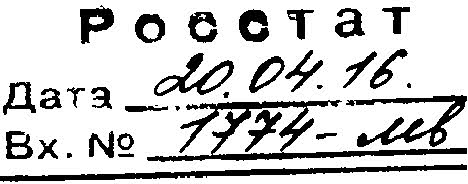 Росстат
Дата 20.04.16.
Вх. № 1774-мв